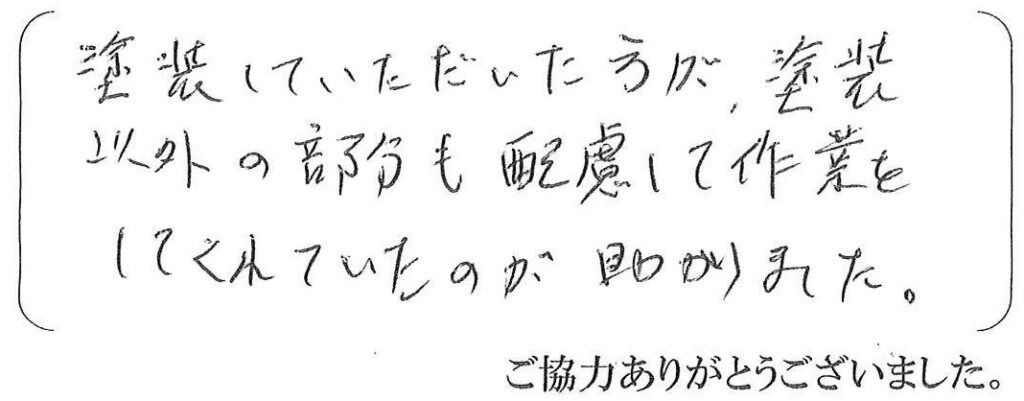 塗装していただいた方が、塗装
以外の部分も配慮して作業を
してくれていたのが助かりました。
ご協力ありがとうございました。